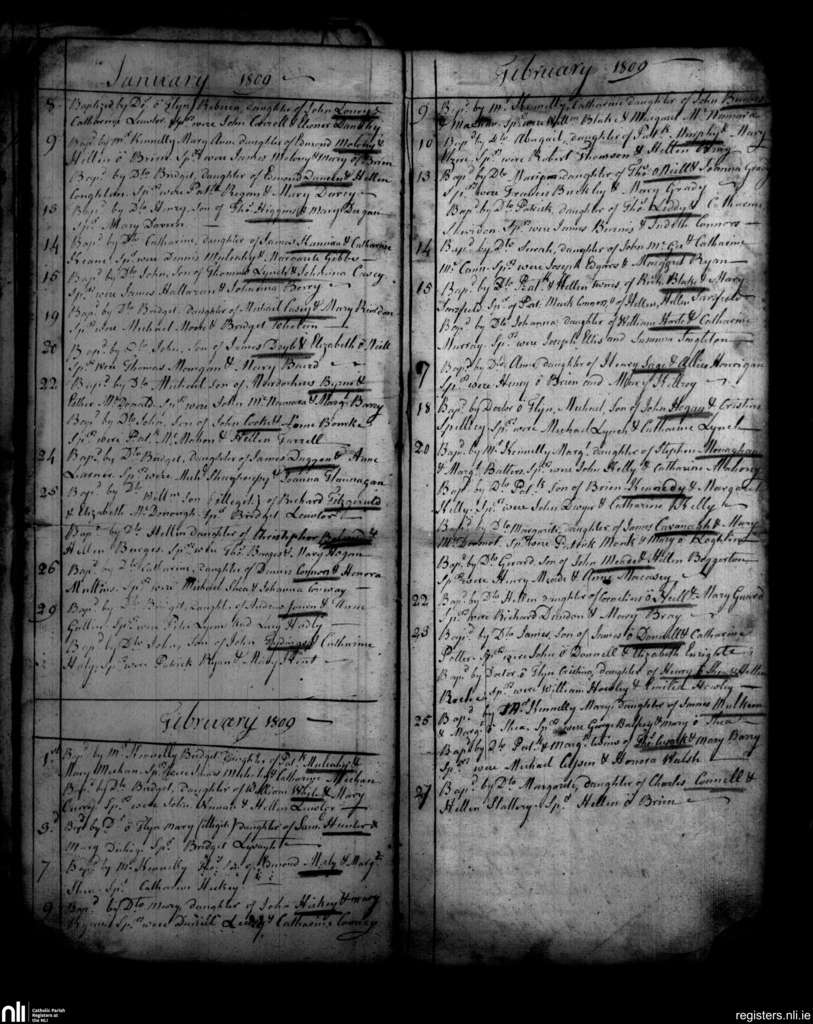 January 1809
8 Baptized by Dr. O Glyn, Rebecca, daughter of John Lowry &
Catharine Lawlor. Sprs were John Carroll & Elenor Dawley
9 Bapd by Mr. Kennelly Mary Ann, daughter of Edmond Molony &
Hellen O Brien. Sprs were James Molony & Mary O Brien
Bapd by Dto Bridget, daughter of Edmond & Hellen
Coughlan. Sprs were Patk Regan & Mary Darcy
13 Bapd by Dto Henry, Son of Thos Higgins & Mary Dugan
Spr Mary Davern
14 Bapd by Dto Catharine, daughter of James Hannan & Catharine
Keane. Sprs were Dennis Mulcahy & Margarite Gebbes
15 Bapd by Dto John, Son of Thomas Lynch & Johanna Casey
Sprs were James Hallaran & Johanna Berry
19 Bapd by Dto Bridget, daughter of Michael Casey & Mary Riordan
Sprs were Michael Meehan & Bridget
20 Bapd by Dto John, Son of James Doyle & Elizabeth O Neill
Sprs were Thomas Mangan & Mary Baird
22 Bapd by Dto Michael Son of Byrne &
Esther McDonald. Sprs were John McNamara & Margt Barry
Bapd by Dto John, Son of John Cooke & Bourke
Sprs were Pat. McMahon & Hellen Farrell
24 Bapd by Dto Bridget, daughter of James Duggan & Anne
Sprs were & Joanna Flannagan
25 Bapd by Dto Willm Son (illegit) of Richard Fitzgerald
& Elizabeth McDonough. Spr Bridget Lawlor
Bapd by Dto Hellen daughter of Christopher &
Hellen Burges. Sprs were Thos Burges & Mary Hogan
26 Bapd by Dto Catharine, daughter of Dennis Connors & Honora
Mullins. Sprs were Michael Shea & Johanna Conway
29 Bapd by Dto Bridget, daughter of Andrew &
Sprs were Peter Lyons and Lucy
Bapd by Dto John, Son of John & Catharine
Sprs were Patrick Ryan & Mary Hunt
February 1809
1st Bapd by Mr. Kennelly Bridget daughter of Patk Mulcahy &
Mary Meehan. Sprs were & Catharine Meehan
Bapd by Dto Bridget, daughter of William White & Mary
Curry. Sprs were John & Hellen Lawlor
3d Bapd by Dr. O Glyn Mary (illegit) daughter of Saml Hunter &
Mary Spr Bridget
7 Bapd by Mr. Kennelly Thos, Son of Edmond & Margt
Shea. Spr Catharine Hickey
9 Bapd by Dto Mary, daughter of John Hickey & Mary
Sprs were Daniell & Catharine Cooney
February 1809
9 Bapd by Mr. Kennelly, Catharine daughter of John
Sprs were Willm Blake & Margaret McNamara
10 Bapd by Dto Abigail, daughter of Patk Murphy & Mary
Sprs were Robert Thomson & Hellen Bray
13 Bapd by Dto daughter of Thos O Neill & Joanna Grady
Sprs were Buckley & Mary Grady
Bapd by Dto Patrick, daughter of Thos Liddy & Catharine
Sheridan. Sprs were James & Judith Connors
14 Bapd by Dto Sarah, daughter of John McGee & Catharine
McCann. Sprs were Joseph Edgars & Margaret Ryan
15 Bapd by Dto Patk & Hellen twins, of Richd Blake & Mary
Sarsfield. Sprs of Pat. Mark Connors & of Hellen, Hellen Sarsfield
Bapd by Dto Johanna daughter of William Harte & Catharine
Murray. Sprs were Joseph Ellis and Singleton
7 Bapd by Dto Anne, daughter of Henry Sage & Allice Hourigan
Sprs were Henry O Brien and Mary Kilroy
18 Bapd by Doctor O Glyn, Michael, Son of John Hogan & Cristine
Spellisey Sprs were Michael Lynch & Catharine Lynch
20 Bapd by Mr. Kennelly Margt daughter of Stephen Monaghan
& Margt Batters. Sprs were John Kelly & Catharine Maloney
Bapd by Dto Patk Son of Brien Kennedy & Margaret
Kelly. Sprs were John Dwyer & Catharine Kelly
Bapd by Dto Margarite, daughter of James Cavanagh & Mary
McDermot. Sprs were Patrick Monk & Mary O Loghlin
Bapd by Dto Gerard, Son of John Meade & Hellen Boggerton
Sprs were Henry Meade & Anne Macasey
22 Bapd by Dto Hellen, daughter of Cornelius O Neill & Mary Guard
Sprs were Richard Dundon & Mary Bray
23 Bapd by Dto James, Son of James O Donnell & Catharine
Potter. Sprs were John O Donnell & Elizabeth Enright
Bapd by Doctor O Glyn Cristina, daughter of Henry O Shea & Hellen
Roche. Sprs were William Howley & Howley
25 Bapd by Mr. Kennelly Mary, daughter of James Mulkern
& Margt O Shea. Sprs were George & Mary O Shea
Bapd by Dto Patk & Margt twins of & Mary Barry
Sprs were Michael & Honora Walsh
27 Bapd by Dto Margarite, daughter of Charles Connell &
Hellen Slattery. Spr Hellen O Brien
nli
Catholic Parish
Registers at
the NLI
registers.nli.ie